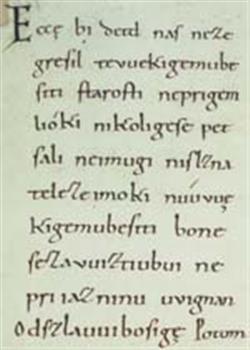 Ecce bi detd naſ neze
greſil tevuekigemube
ſiti ſtaroſti neprigem
lióki nikoligeſe pet
ſali neimugi niſlzna
telezeimoki nuúvuę
kigemubeſiti bone
ſezavuiztiubui ne
priiazninu uvignan
Odſzlauuiboſigę Potom